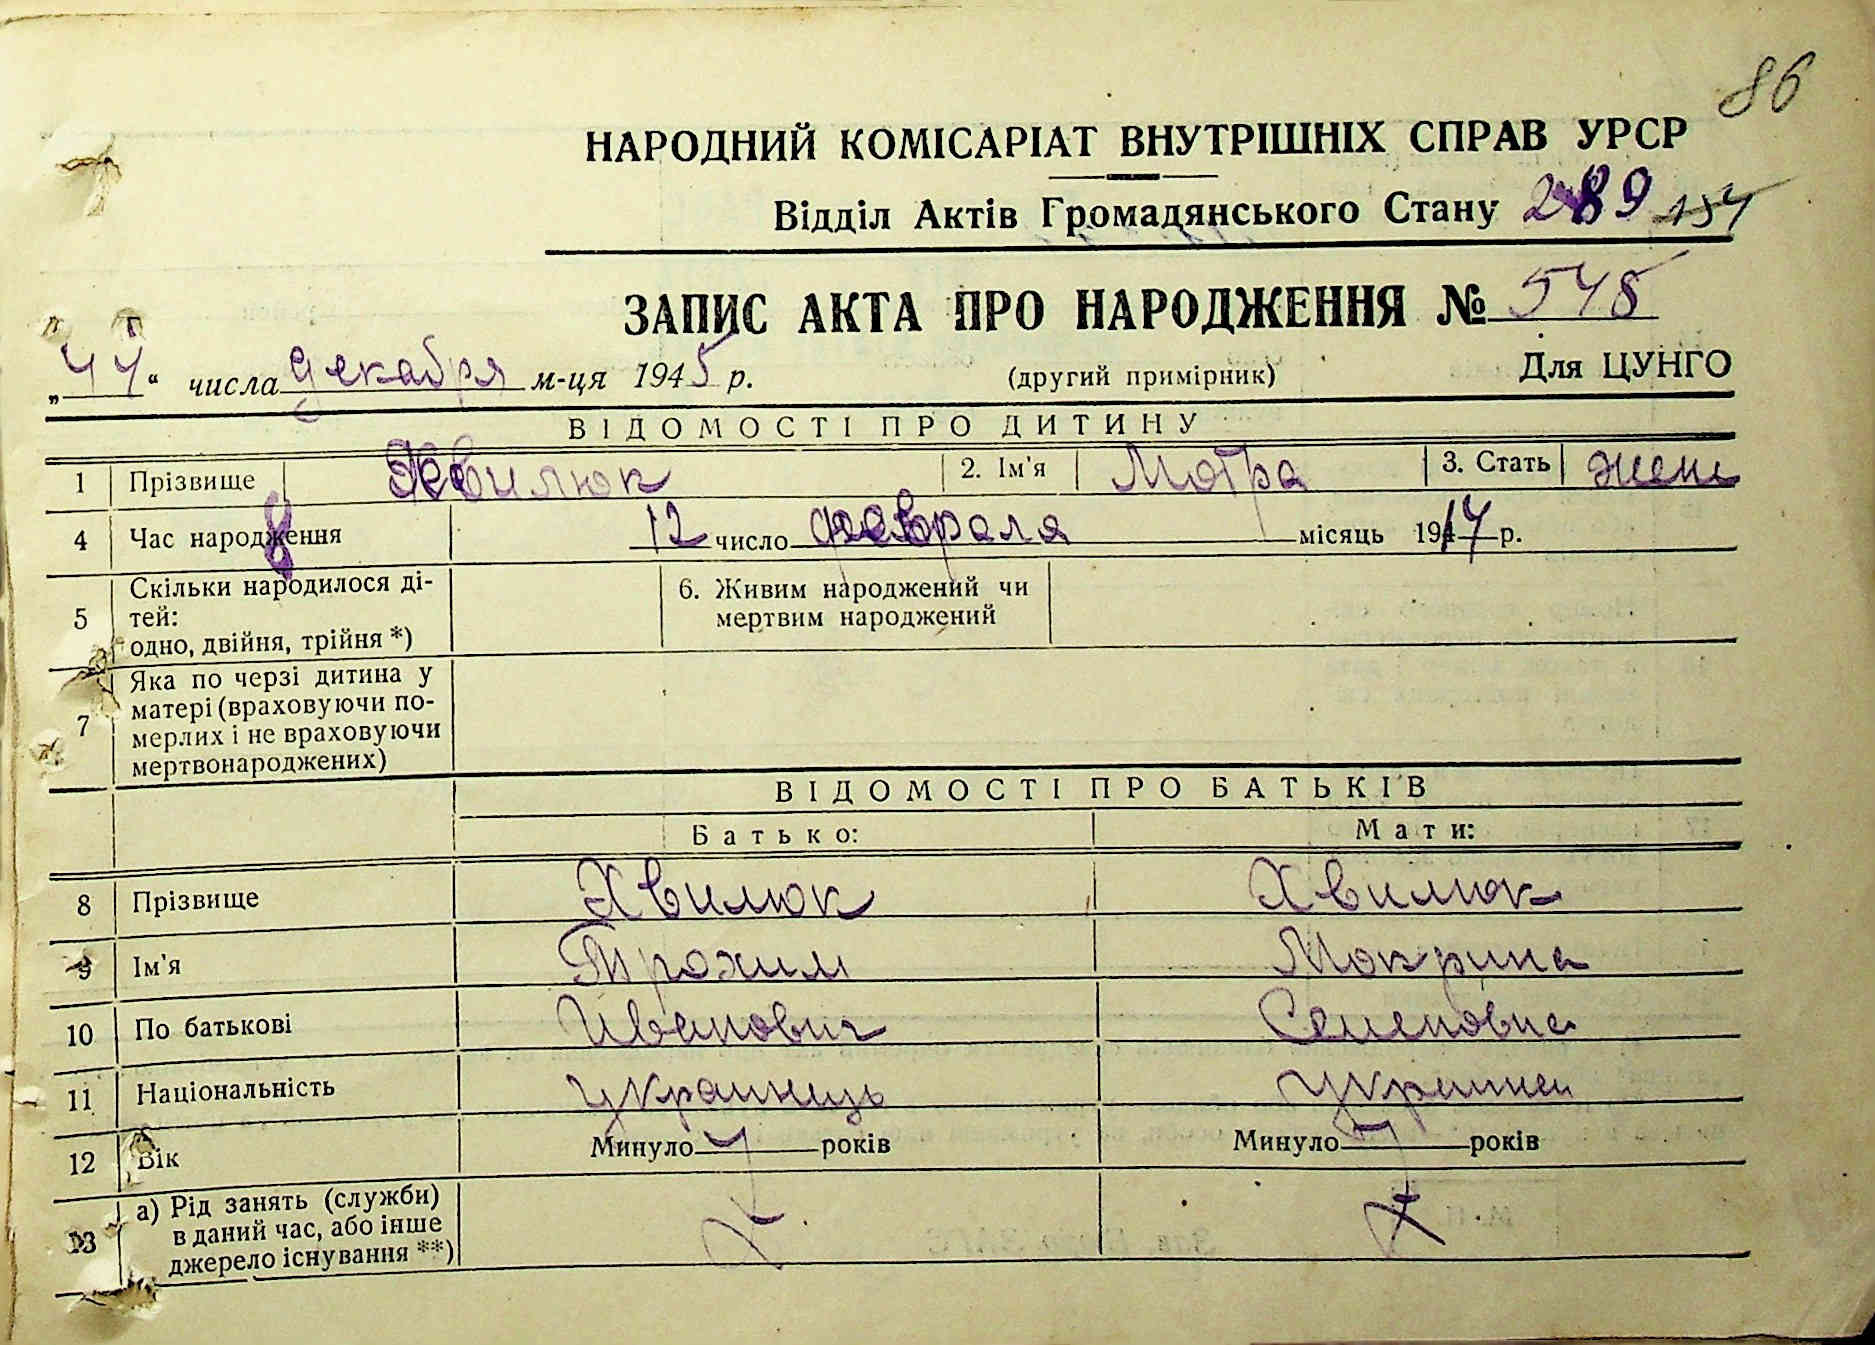 86
НАРОДНИЙ КОМІСАРІАТ ВНУТРІШНІХ СПРАВ УРСР
Відділ Актів Громадянського Стану 289 154
ЗАПИС АКТА ПРО НАРОДЖЕННЯ № 548
„ “ числа декабря м-ця 1945 р. (другий примірник) Для ЦУНГО
ВІДОМОСТІ ПРО ДИТИНУ
1 Прізвище Хвилюк 2. Ім'я Мотра 3. Стать жен
4 Час народження 12 число февраля місяць 1917 р.
5 Скільки народилося ді-
тей:
одно, двійня, трійня *)
6. Живим народжений чи
мертвим народжений
7 Яка по черзі дитина у
матері (враховуючи по-
мерлих і не враховуючи
мертвонароджених)
ВІДОМОСТІ ПРО БАТЬКІВ
Батько: Мати:
8 Прізвище Хвилюк Хвилюк
9 Ім'я Трохим Мокрина
10 По батькові Иванович Семеновна
11 Національність українець українка
12 Вік Минуло років Минуло років
13 а) Рід занять (служби)
в даний час, або інше
джерело існування **)